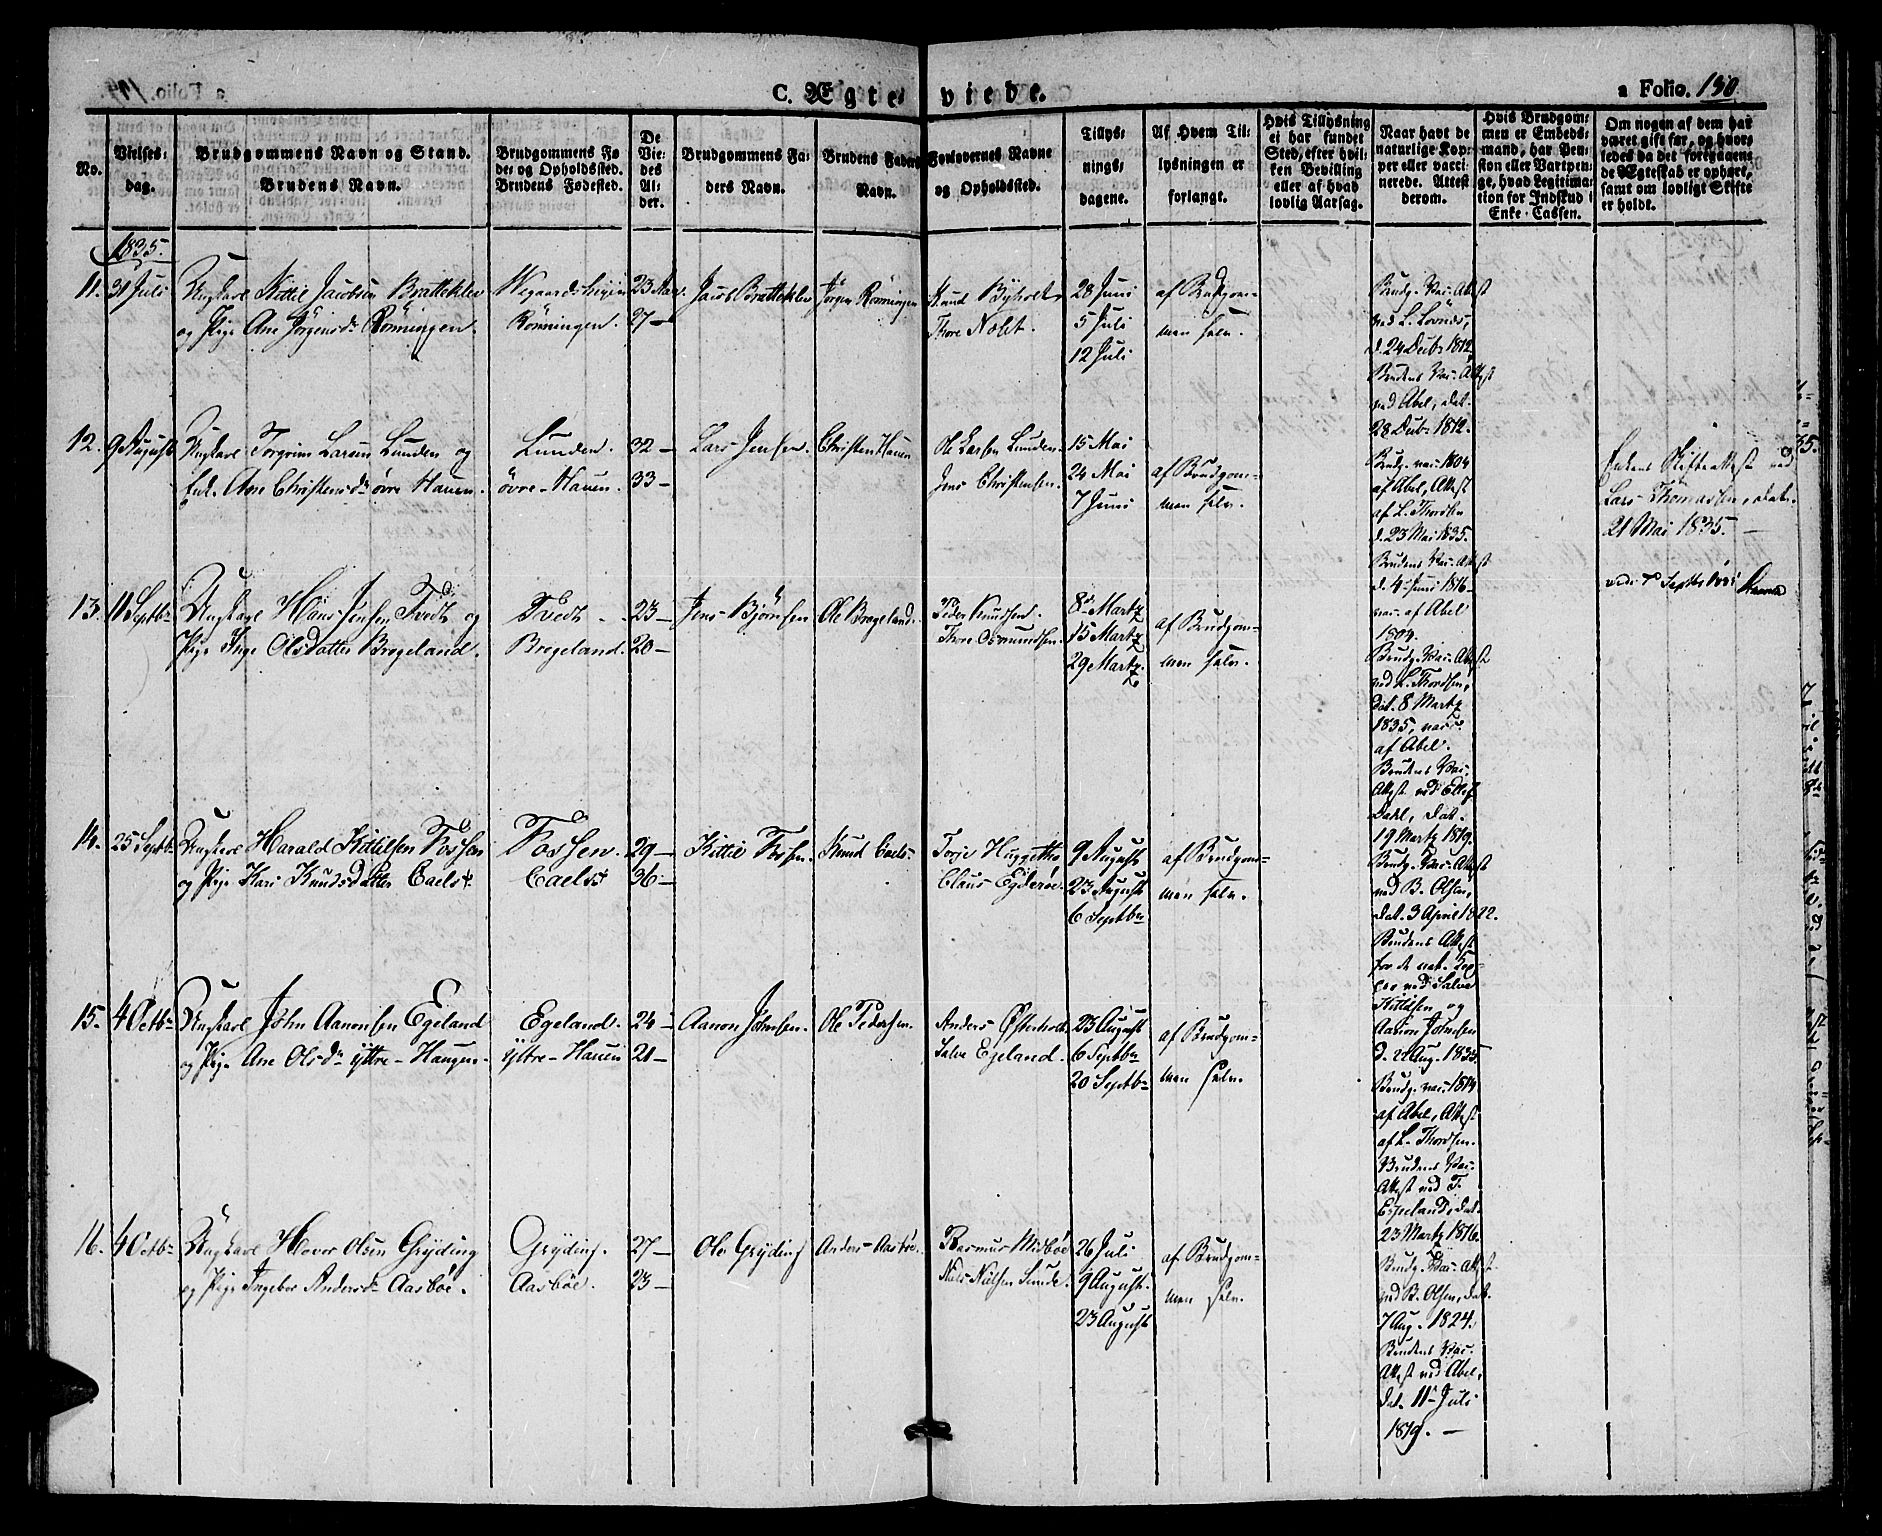 C. Ægteviede.
a Folio. 150
No.
Vielses-
dag.
Brudgommens Navn og Stand.
Brudens Navn.
Brudgommens Fø
de- og Opholdssted.
Brudens Fødested.
De
Vie-
des
Al-
der.
Brudgommens Fa-
ders Navn.
Brudens Faders
Navn.
Forlovernes Navne
og Opholdssted.
Tillys-
nings-
dagene.
Af Hvem Til-
lysningen er
forlangt.
Hvis Tillysning
ei har fundet
Sted, efter hvil-
ken Bevilling
eller af hvad
lovlig Aarsag.
Naar havt de
naturlige Kop-
per eller vacci-
nerede. Attest
derom.
Hvis Brudgom-
men er Embeds-
mand, har Pen-
sion eller Vartpen-
ge, hvad Legitima-
tion for Indskud i
Enke-Cassen.
Om nogen af dem har
været gift før, og hvor-
ledes da det foregaaen-
de Ægteskab er ophørt,
samt om lovligt Skifte
er holdt.
1835.
11. 31 Juli
Ungkarl Kittil Jacobsen Bratteklev
og Pige Ane Jørgensdr Rönningen.
Wegaardsheyen
Rönningen.
23 Aar
27 -
Jacob Bratteklev
Jörgen Rönningen
Knud Byholt
Thore Nobst.
28 Juni
5 Juli
12 Juli
af Brudgom-
men selv.
Brudg. Vac. Attest
ved L. Lövnes,
d. 24 Decbr 1812
Brudens Vac. Attest
ved Abel, dat.
28 Decbr 1812.
12. 9 August
Ungkarl Torgrim Larsen Lunden og
Enke Ane Christensdr övre Hauen.
Lunden.
övre-Hauen.
32 -
33 -
Lars Jensen.
Christen Hauen
Ole Larsen Lunden.
Jens Christensen.
15 Mai
24 Mai
7 Juni
af Brudgom-
men selv.
Brudg. vac. 1804
af Abel, Attest
af L. Thordsen
d. 23 Mai 1835.
Brudens Vac. Attest
d. 4 Juni 1816
vac. af Abel
1804.
Enkens Skifteattest ved
Lars Thomassen, dat.
21 Mai 1835. -
13. 11 Septbr
Ungkarl Hans Jensen Tvedt og
Pige Inge Olsdatter Brogeland.
Tvedt
Brogeland.
23 -
20 -
Jens Björnsen
Ole Brogeland.
Peder Knudsen.
Thore Osmundsen.
8de Martz
15 Martz
29 Martz.
af Brudgom-
men selv.
Brudg. Vac. Attest
ved L. Thordsen,
dat. 8 Martz
1835, vacc.
af Abel.
Brudens Vac.
Attest ved Ellef
Dahl, dat.
19 Martz 1819.
14. 25 Septbr
Ungkarl Harald Kittilsen Fossen
og Pige Kari Knudsdatter Caelst.
Fossen.
Caelst
29 -
36 -
Kittil Fossen.
Knud Caels-
Torje Huggetho
Claus Egderöe.
9 August
23 August
6 Septbr
af Brudgom-
men selv.
Brudg. Vac. Attest
ved B. Olsen,
dat. 3 April 1822.
Brudens Attest
for de nat. Kop-
per ved Salve
Kittilsen og
Aanon Johnsen
d. 22 Aug. 1835
15. 4 Octbr
Ungkarl John Aanonsen Egeland
og Pige Ane Olsdr ÿttre-Haugen.
Egeland.
ÿttre-Hauen
24 -
21 -
Aanon Johnsen.
Ole Pedersen.
Anders Østerholt.
Salve Egeland.
23 August
6 Septbr
20 Septbr
af Brudgom-
men selv.
Brudg. vac. 1814
af Abel, Attest
af L. Thordsen.
Brudens Vac.
Attest ved T.
Espeland, dat.
23 Martz 1816.
16. 4 Octbr
Ungkarl Hover Olsen Gryding
og Pige Ingebor Andersdr Aasböe.
Gryding.
Aasböe.
27 -
23 -
Ole Gryding
Anders Aasböe.
Rasmus Midböe
Niels Nilsen Sunde.
26 Juli
9 August.
23 August
af Brudgom-
men selv.
Brudg. Vac. Attest
ved B. Olsen, dat.
7 Aug. 1824.
Brudens Vac.
Attest ved Abel,
dat. 11 Juli
1819. -